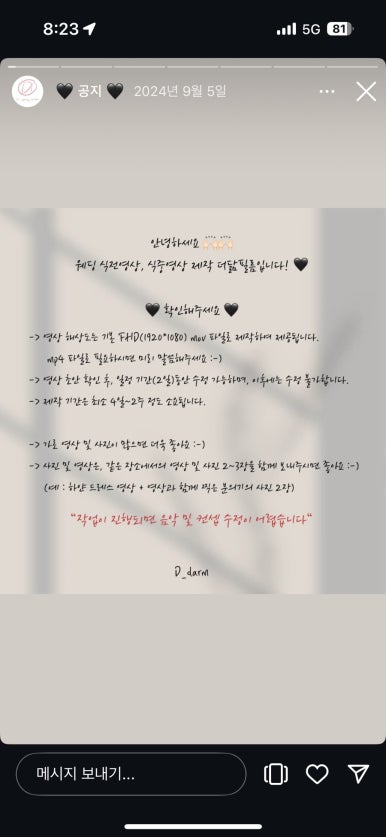 8:23
5G 81
🖤 공지 🖤 2024년 9월 5일
안녕하세요 🙌🏻🙌🏻
웨딩 식전영상, 식중영상 제작 더닮필름입니다! 🖤
🖤 확인해주세요 🖤
-> 영상 해상도는 기본 FHD(1920*1080) mov 파일로 제작하여 제공됩니다.
mp4 파일로 필요하시면 미리 말씀해주세요 :-)
-> 영상 초안 확인 후, 일정 기간(2일)동안 수정 가능하며, 이후에는 수정 불가합니다.
-> 제작 기간은 최소 4일~2주 정도 소요됩니다.
-> 가로 영상 및 사진이 많으면 더욱 좋아요 :-)
-> 사진 및 영상은, 같은 장소에서의 영상 및 사진 2~3장을 함께 보내주시면 좋아요 :-)
(예 : 하얀 드레스 영상 + 영상과 함께 찍은 분위기의 사진 2장)
"작업이 진행되면 음악 및 컨셉 수정이 어렵습니다"
D_darm
메시지 보내기...